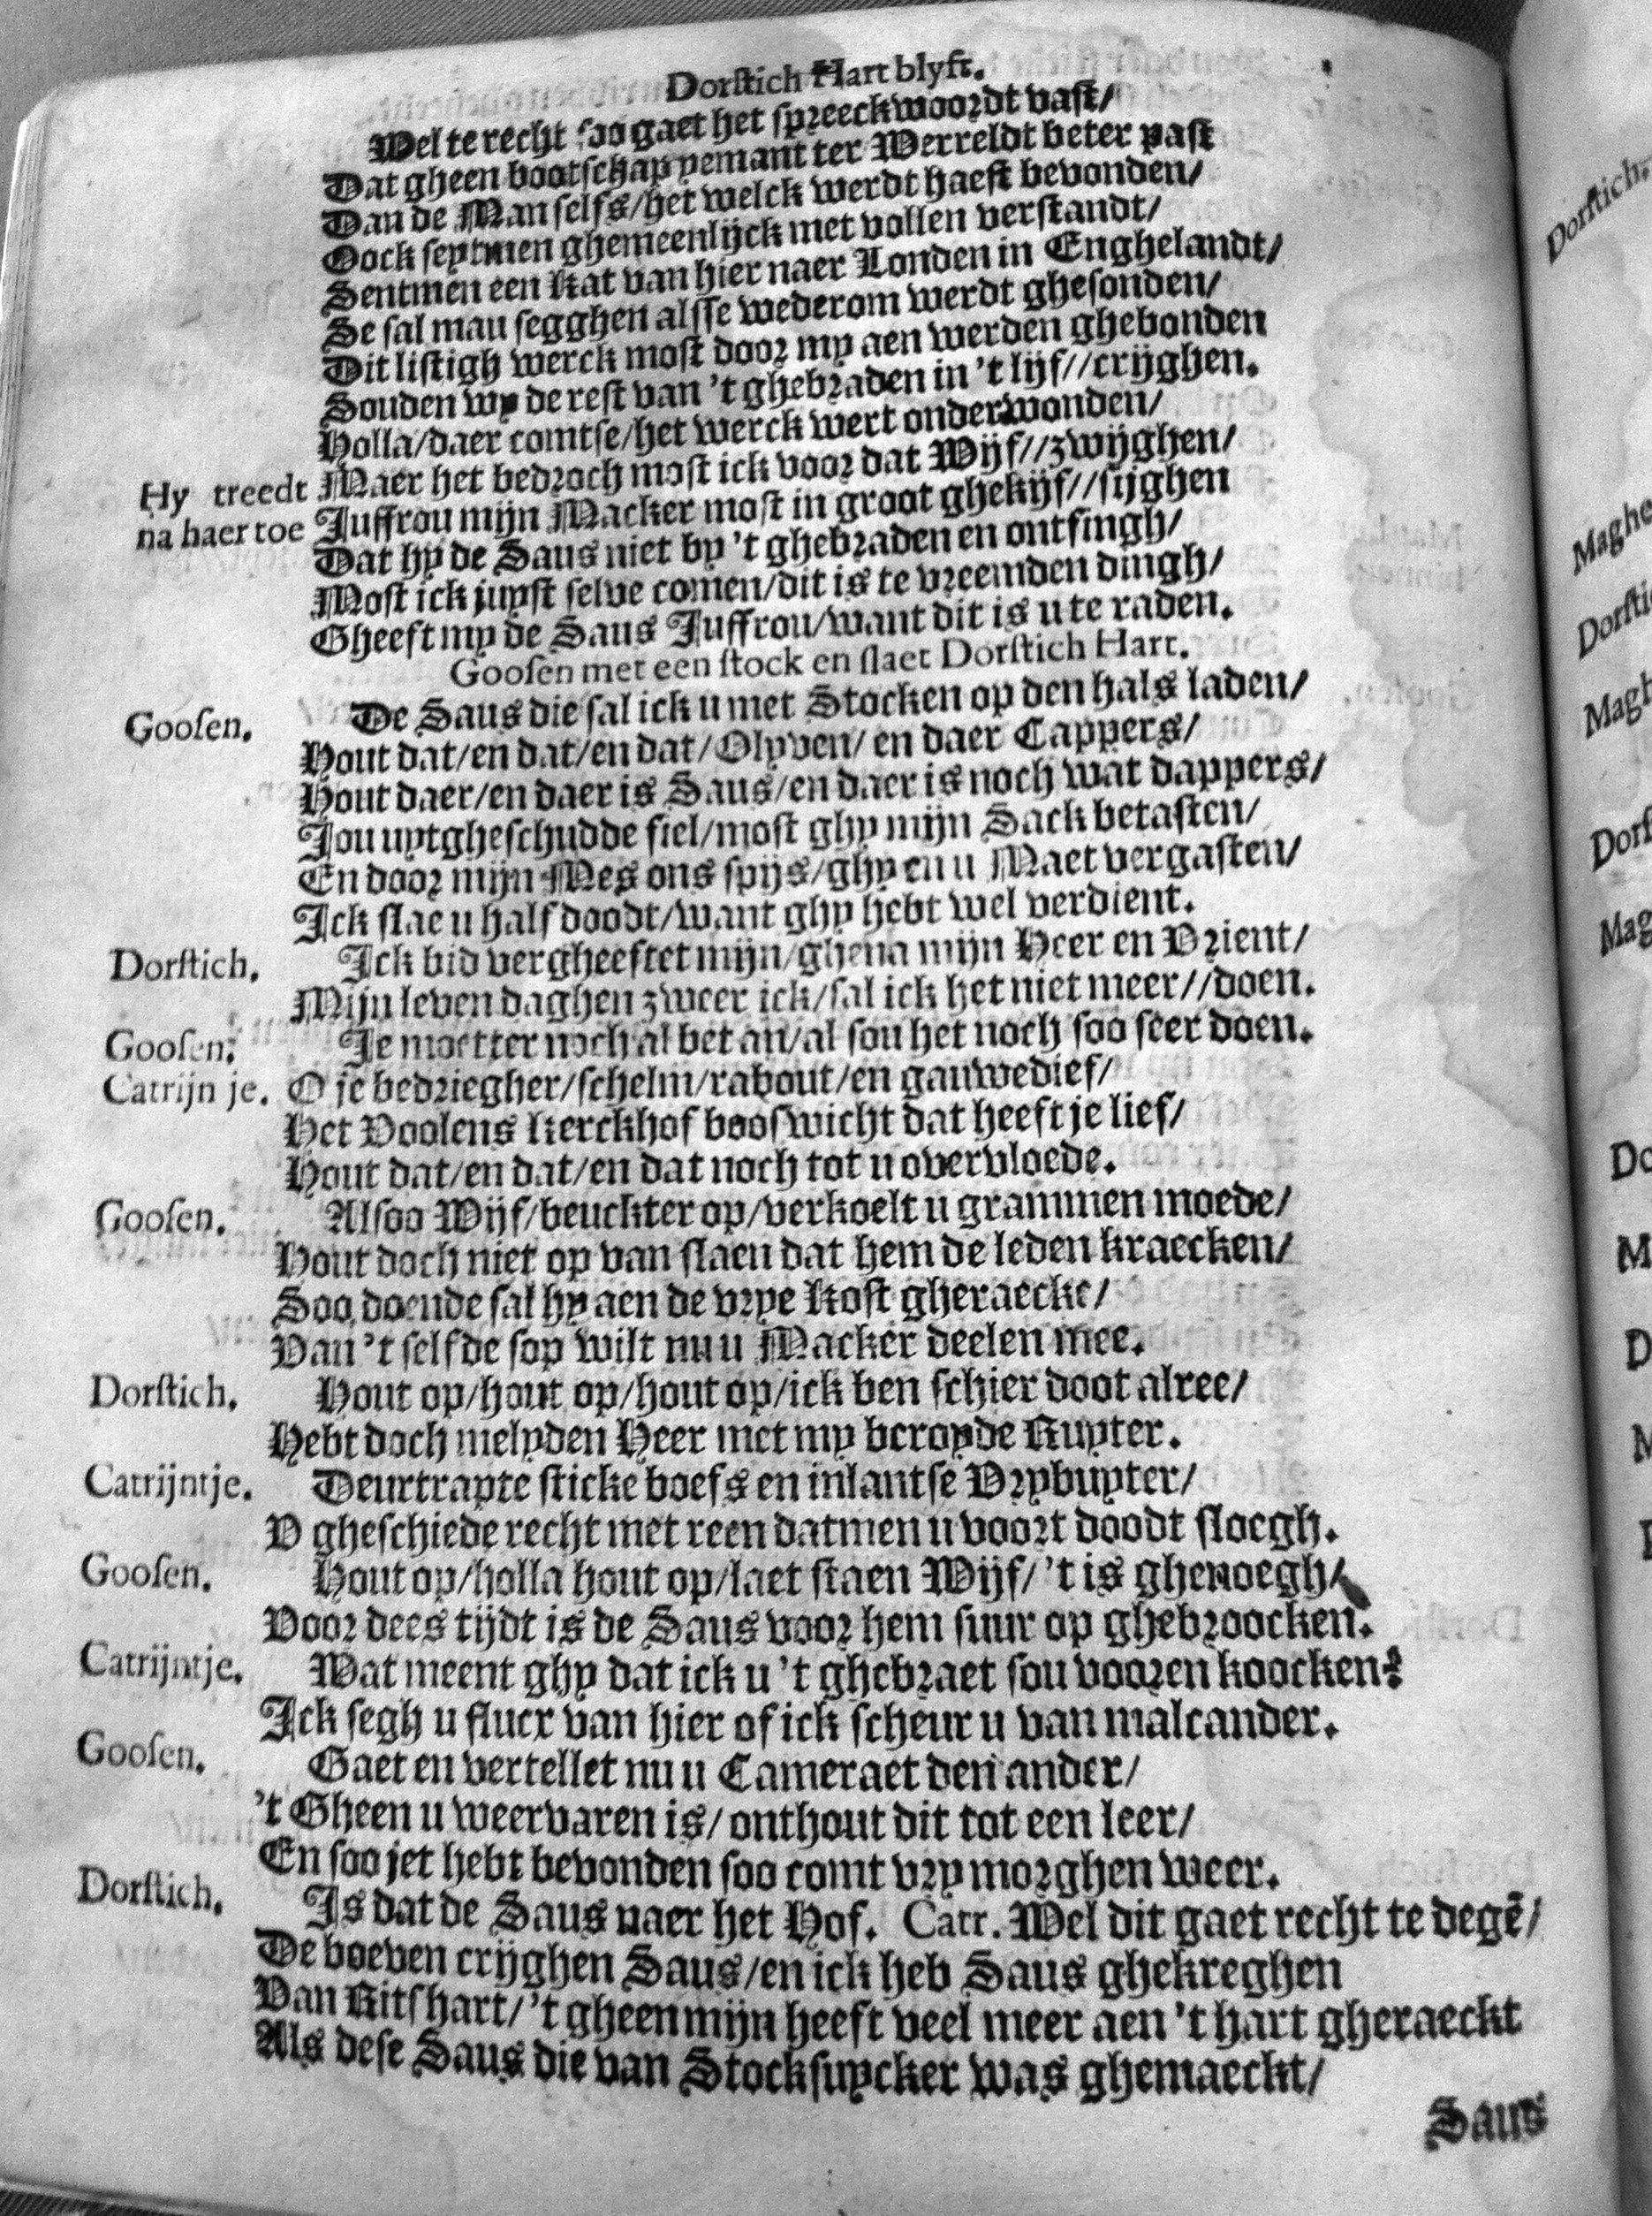 Dorstich Hart blyft.
Wel te recht soo gaet het spreeckwoordt vast/
Dat gheen bootschap yemant ter Werreldt beter past
Dan de Man selfs/het welck werdt haest bevonden/
Oock seytmen ghemeenlijck met vollen verstandt/
Sentmen een Kat van hier naer Londen in Enghelandt/
Se sal mau segghen alsse wederom werdt ghesonden/
Dit listigh werck most door my aen werden ghebonden
Souden wy de rest van 't ghebraden in 't lijf//crijghen.
Holla/daer comtse/het werck wert onderwonden/
Hy treedt Maer het bedroch most ick voor dat Wijf//zwijghen/
na haer toe Juffrou mijn Macker most in groot ghekijf//sijghen
Dat hy de Saus niet by 't ghebraden en ontfingh/
Most ick juyst selve comen/dit is te vreemden dingh/
Gheeft my de Saus Juffrou/want dit is u te raden.
Goosen met een stock en slaet Dorstich Hart.
Goosen. De Saus die sal ick u met Stocken op den hals laden/
Hout dat/en dat/en dat/Olyven/en daer Cappers/
Hout daer/en daer is Saus/en daer is noch wat dappers/
Jou uytgheschudde fiel/most ghy mijn Sack betasten/
En door mijn Mes ons spijs/ghy en u Maet vergasten/
Ick slae u half doodt/want ghy hebt wel verdient.
Dorstich. Ick bid vergheeftet mijn/ghena mijn Heer en Vrient/
Mijn leven daghen zweer ick/sal ick het niet meer//doen.
Goosen. Je moetter noch al bet an/al sou het noch soo seer doen.
Catrijn je. O je bedriegher/schelm/rabout/en gauwedief/
Het Voolens Kerckhof booswicht dat heeft je lief/
Hout dat/en dat/en dat noch tot u overvloede.
Goosen. Alsoo Wijf/beuckter op/verkoelt u grammen moede/
Hout doch niet op van slaen dat hem de leden kraecken/
Soo doende sal hy aen de vrye Kost gheraecke/
Van 't selfde sop wilt nu u Macker deelen mee.
Dorstich. Hout op/hout op/hout op/ick ben schier doot alree/
Hebt doch melyden Heer met my beroyde Ruyter.
Catrijntje. Deurtrapte sticke boefs en inlantse Vrybuyter/
V gheschiede recht met reen datmen u voort doodt sloegh.
Goosen. Hout op/holla hout op/laet staen Wijf/'t is ghenoegh/
Voor dees tijdt is de Saus voor hem suur op ghebroocken.
Catrijntje. Wat meent ghy dat ick u 't ghebraet sou vooren koocken?
Ick segh u flucx van hier of ick scheur u van malcander.
Goosen. Gaet en vertellet nu u Cameraet den ander/
't Gheen u weervaren is/onthout dit tot een leer/
En soo jet hebt bevonden soo comt vry morghen weer.
Dorstich. Is dat de Saus naer het Hof. Catr. Wel dit gaet recht te degē/
De boeven crijghen Saus/en ick heb Saus ghekreghen
Van Ritshart/'t gheen mijn heeft veel meer aen 't hart gheraeckt
Als dese Saus die van Stocksuycker was ghemaeckt/
Saus
Dorstich.